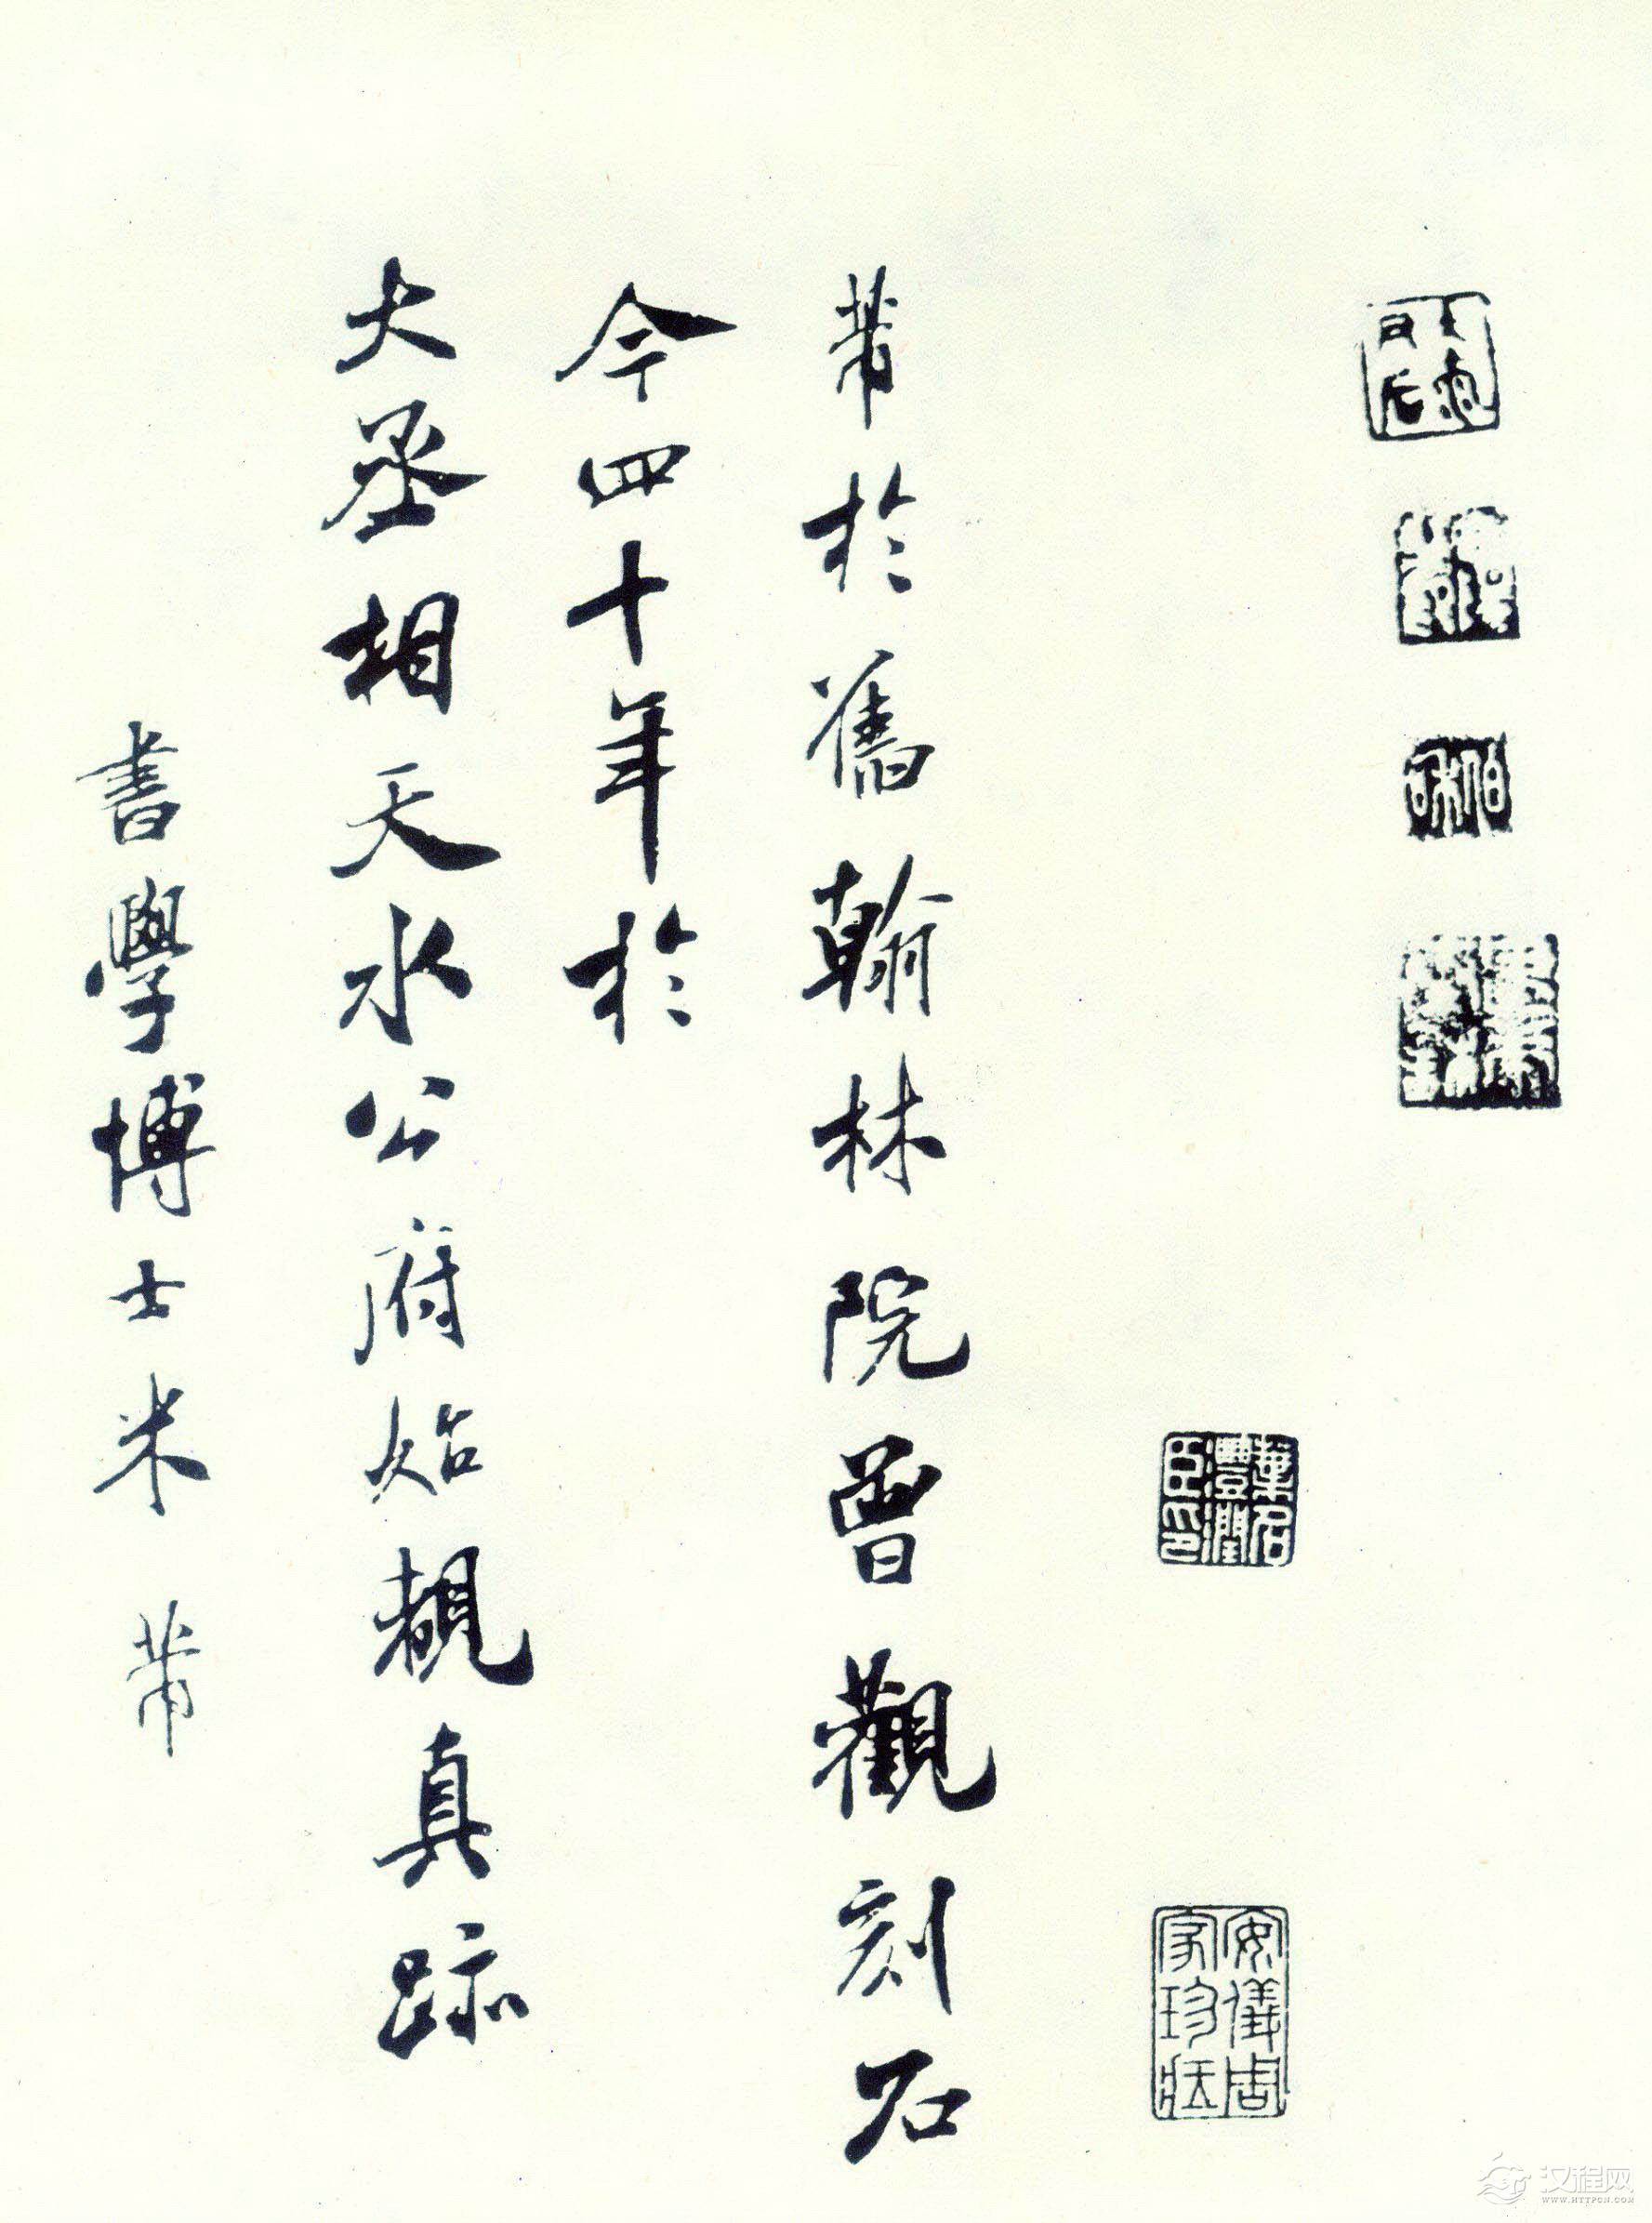 芾於舊翰林院曾觀刻石
今四十年於
大丞相天水公府始覩真跡
書學博士米芾
安儀周家珍藏
汉程网
WWW.HTTPCN.COM